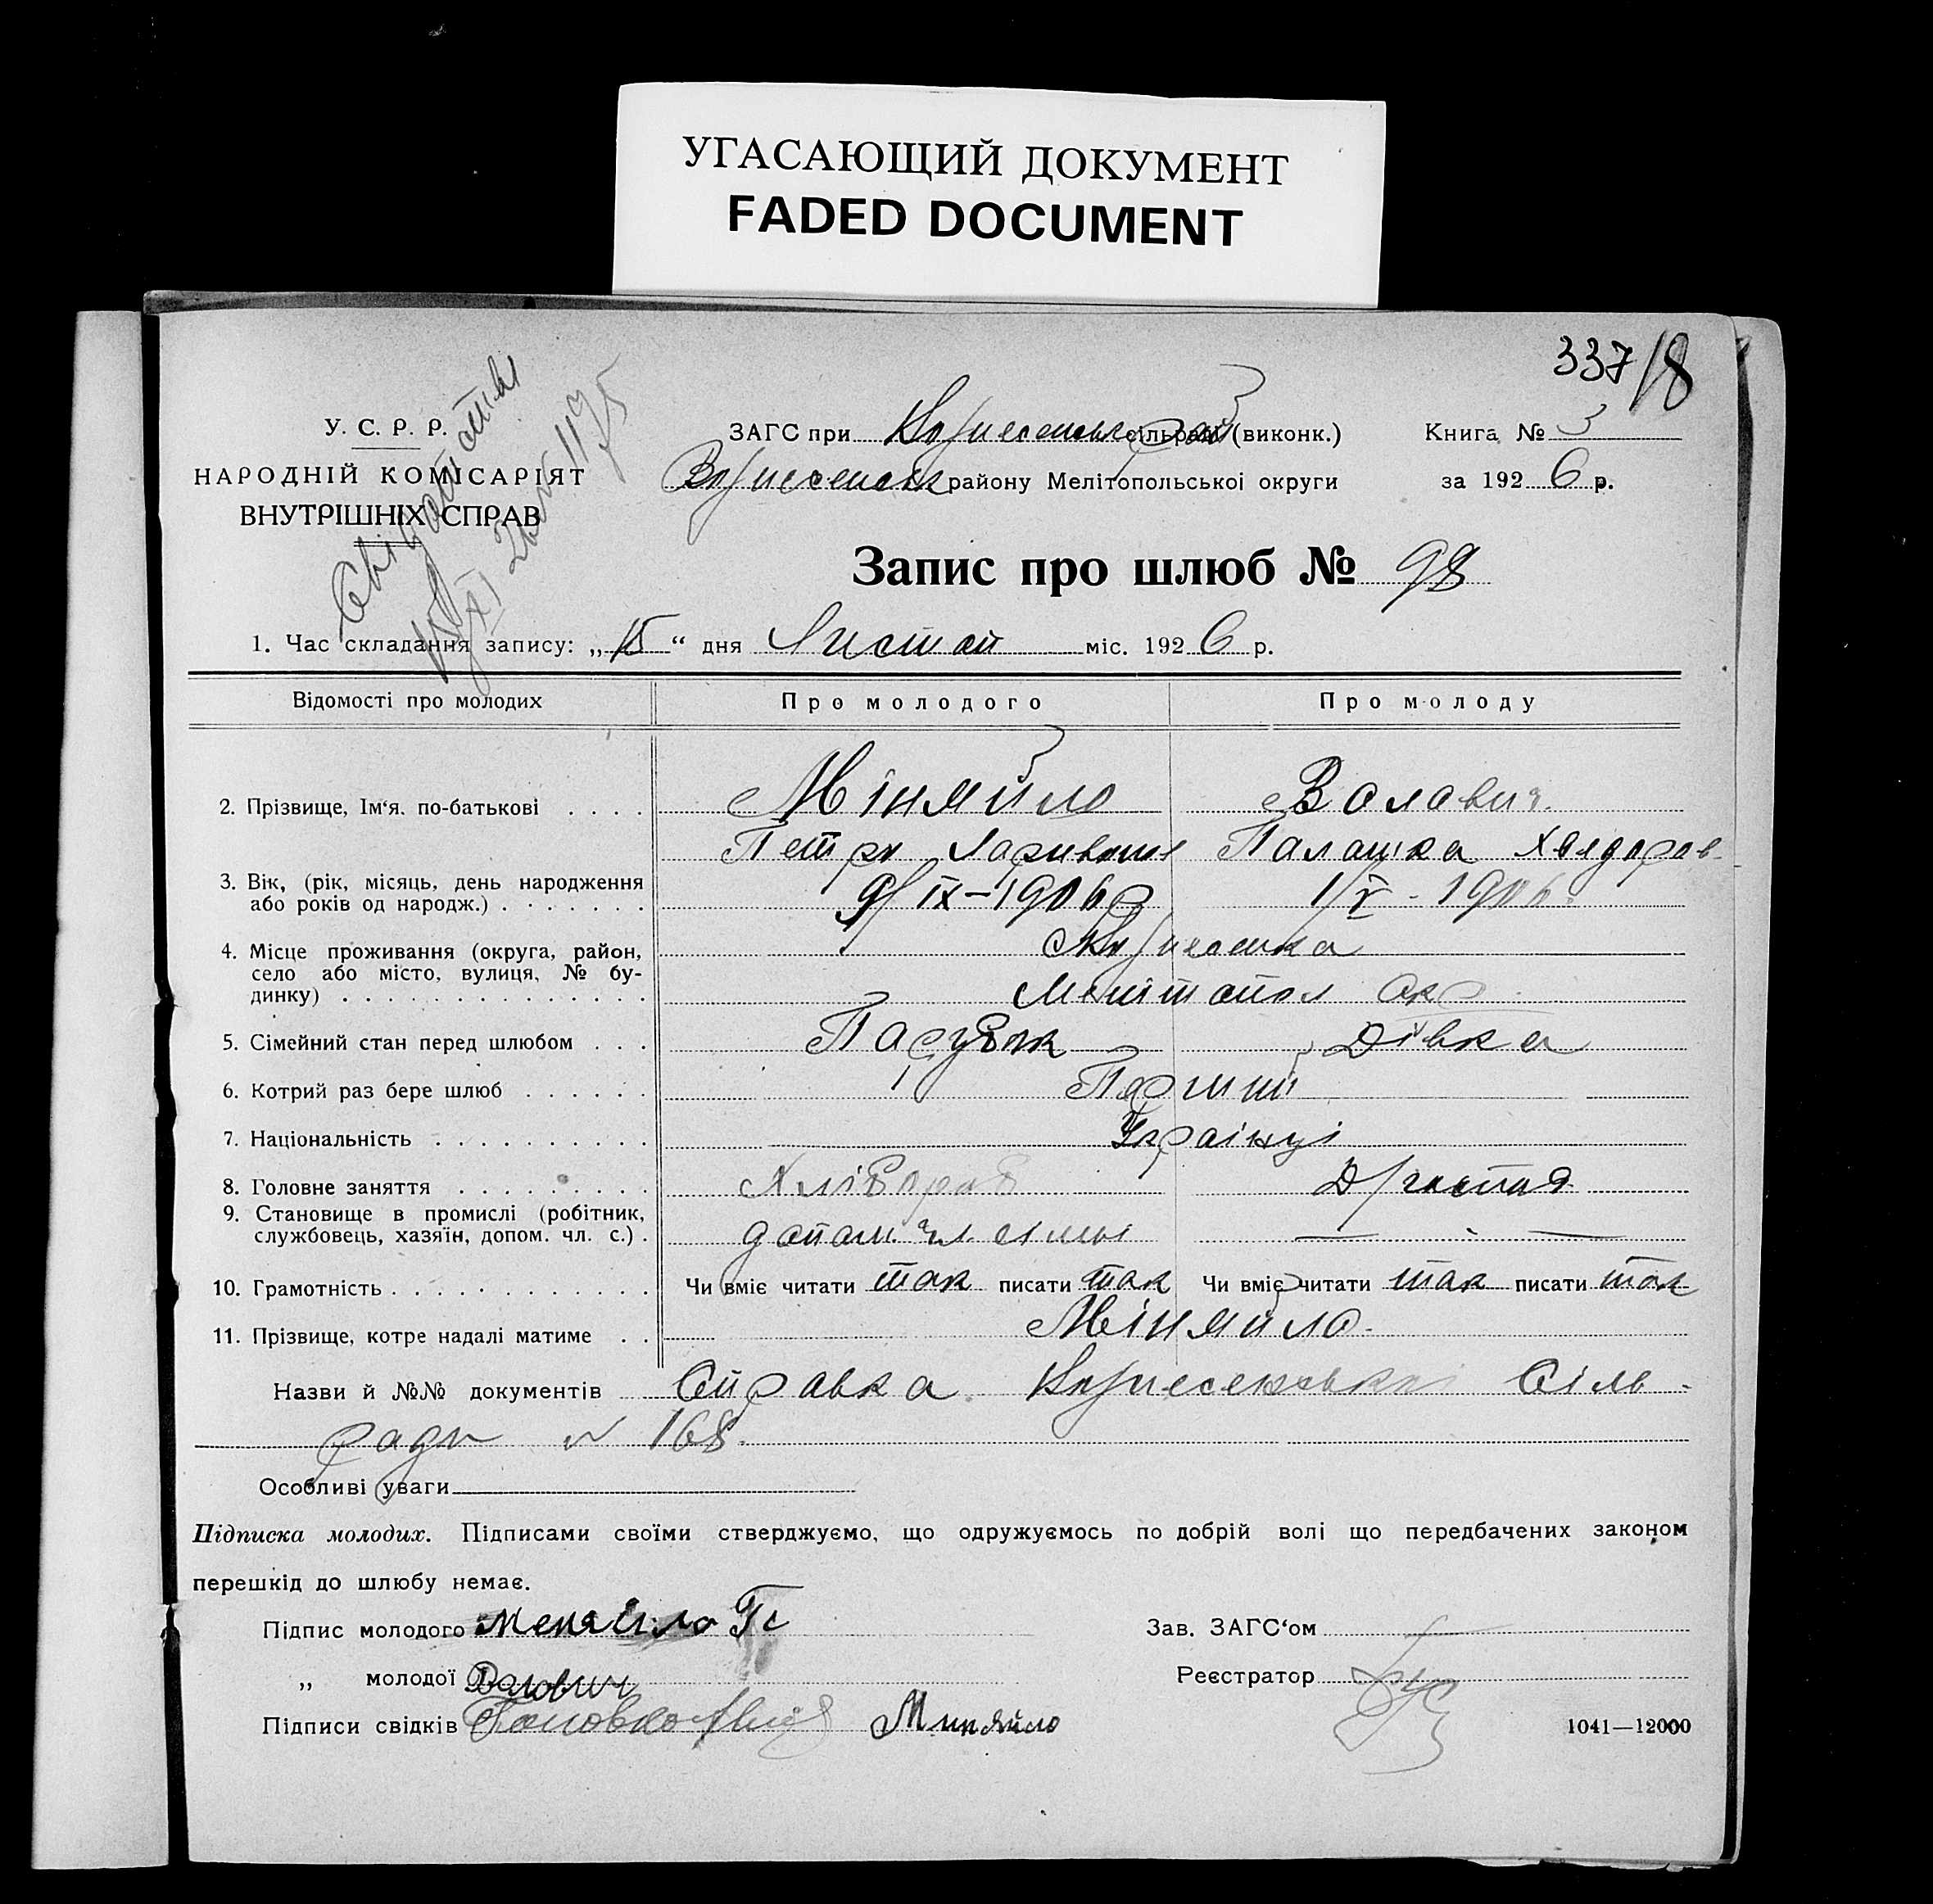 УГАСАЮЩИЙ ДОКУМЕНТ
FADED DOCUMENT
337/18
У. С. Р. Р.
НАРОДНІЙ КОМІСАРІЯТ
ВНУТРІШНІХ СПРАВ
ЗАГС при Вознесенськ сільраді (виконк.)
Книга № 3
Вознесенськ району Мелітопольської округи
за 1926 р.
Запис про шлюб № 98
1. Час складання запису: „15“ дня Листоп міс. 1926 р.
Відомості про молодих
Про молодого
Про молоду
2. Прізвище, Ім'я, по-батькові
Міняйло
Валович
Петро Ларивонов
Палашка Хведоров
3. Вік, (рік, місяць, день народження або років од народж.)
9/ІХ-1906р
1/Х - 1906
4. Місце проживання (округа, район, село або місто, вулиця, № будинку)
Вознесенка
Мелітопол окр
5. Сімейний стан перед шлюбом
Парубок
Дівка
6. Котрий раз бере шлюб
Перший
7. Національність
Українці
8. Головне заняття
Хлібороб
9. Становище в промислі (робітник, службовець, хазяїн, допом. чл. с.)
допом. чл. сімьі
— · —
10. Грамотність
Чи вміє читати так писати так
Чи вміє читати так писати так
11. Прізвище, котре надалі матиме
Міняйло.
Назви й №№ документів Справка Вознесенської Сіль-
ради № 168.
Особливі уваги
Підписка молодих. Підписами своїми стверджуємо, що одружуємось по добрій волі що передбачених законом
перешкід до шлюбу немає.
Підпис молодого Меняйло
Зав. ЗАГС'ом
„ молодої Валович
Реєстратор
Підписи свідків Миняйло
1041—12000